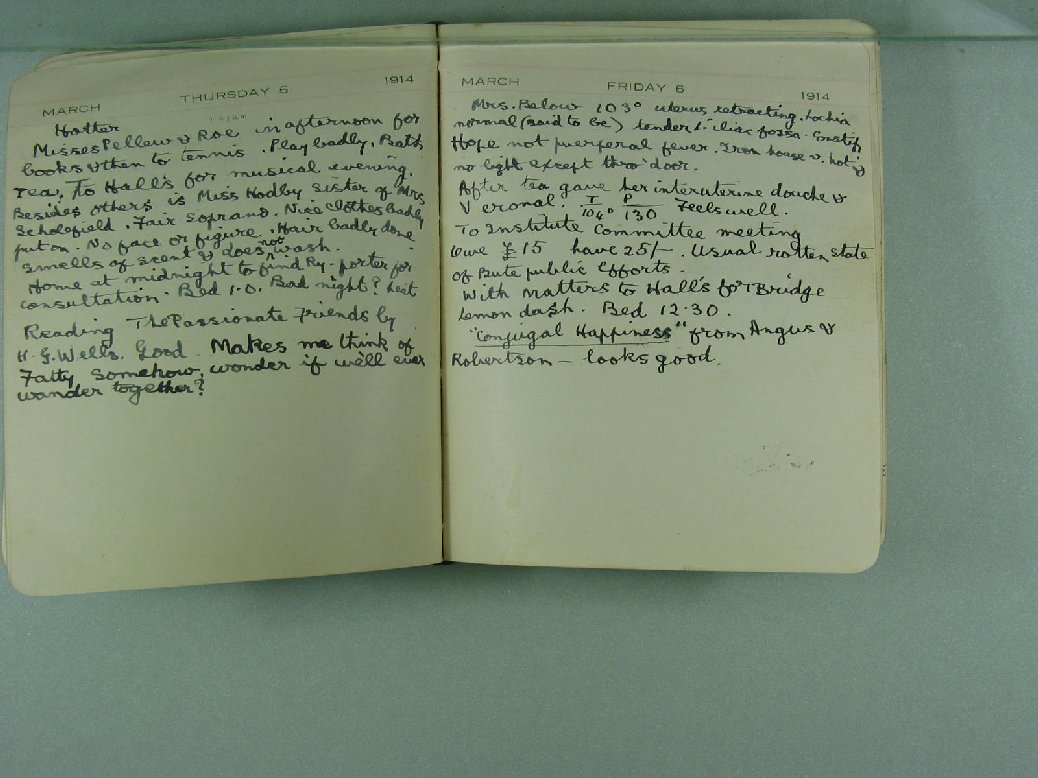 MARCH THURSDAY 5 1914
Hotter
Misses Pellew & Roe in afternoon for
books & then to tennis. Play badly. Bath
Tea, To Hall's for musical evening.
Besides others is Miss Hadby sister of Mrs
Scholefield. Fair soprano. Nice clothes badly
put on. No face or figure. Hair badly done
smells of scent & does not wash.
Home at midnight to find Ry-porter for
consultation. Bed 1.0. Bad night? heat
Reading The Passionate Friends by
H.G. Wells. Good. Makes me think of
Fatty somehow, wonder if we'll ever
wander together?
MARCH FRIDAY 6 1914
Mrs. Below 103° uterus retracting. Lochia
normal (said to be) tender L. iliac fossa. Constip
Hope not puerperal fever. Iron house v. hot &
no light except thro' door.
After tea gave her interuterine douche &
Veronal. T/104° P/130 Feels well.
To Institute Committee meeting
owe £15 have 25/-. Usual rotten state
of Bute public efforts.
With Matters to Hall's for "Bridge"
Lemon dash. Bed 12.30.
"Conjugal Happiness" from Angus &
Robertson – looks good.